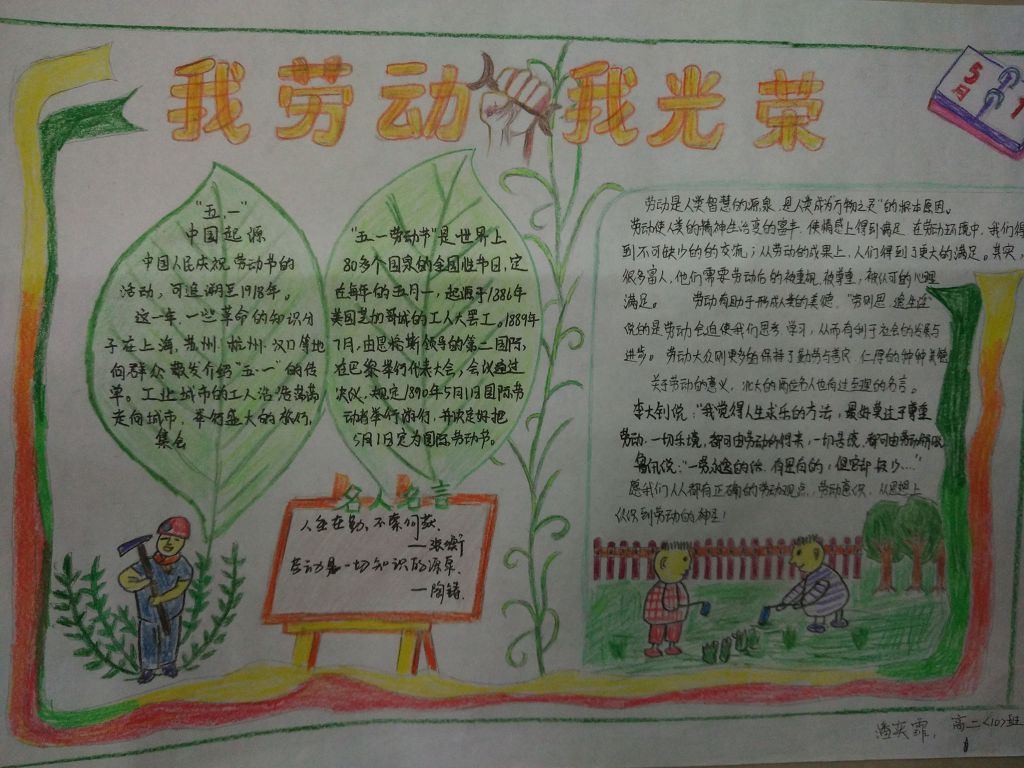 我劳动 我光荣
5月1
"五.一"
中国起源
中国人民庆祝劳动节的
活动,可追溯至1918年。
这一年,一些革命的知识分
子在上海,苏州,杭州,汉口等地
向群众散发介绍"五·一"的传
单。工业城市的工人浩浩荡荡
走向城市,举行盛大的游行,
集会
"五一劳动节"是世界上
80多个国家的全国性节日,定
在每年的五月一,起源于1886年
美国芝加哥城的工人大罢工。1889年
7月,由恩格斯领导的第二国际,
在巴黎举行代表大会,会议通过
决议,规定1890年5月1日国际劳
动者举行游行,并决定好把
5月1日定为国际劳动节。
名人名言
人生在勤,不索何获
—张衡
劳动是一切知识的源泉
—陶铸
劳动是人类智慧的源泉,是人类成为"万物之灵"的根本原因。
劳动使人类的精神生活变的富丰,使情感上得到满足,在劳动环境中,我们得
到不可缺少的的交流;从劳动的成果上,人们得到了更大的满足。其实,
很多富人,他们需要劳动后的被重视,被尊重,被认可的心理
满足。 劳动有助于形成人类的美德,"劳则思
说的是劳动会迫使我们思考,学习,从而有利于社会的发展与
进步。劳动大众则更多的保持了勤劳与善良,仁厚的种种美德
关于劳动的意义,北大的两位名人也有过至理的名言。
李大钊说:"我觉得人生求乐的方法,最好莫过于尊重
劳动,一切乐境,都可由劳动得来,一切苦境,都可由劳动解脱
鲁迅说:"
愿我们人人都有正确的劳动观点,劳动意识,从思想上
认识到劳动的神圣!
高二<10>班